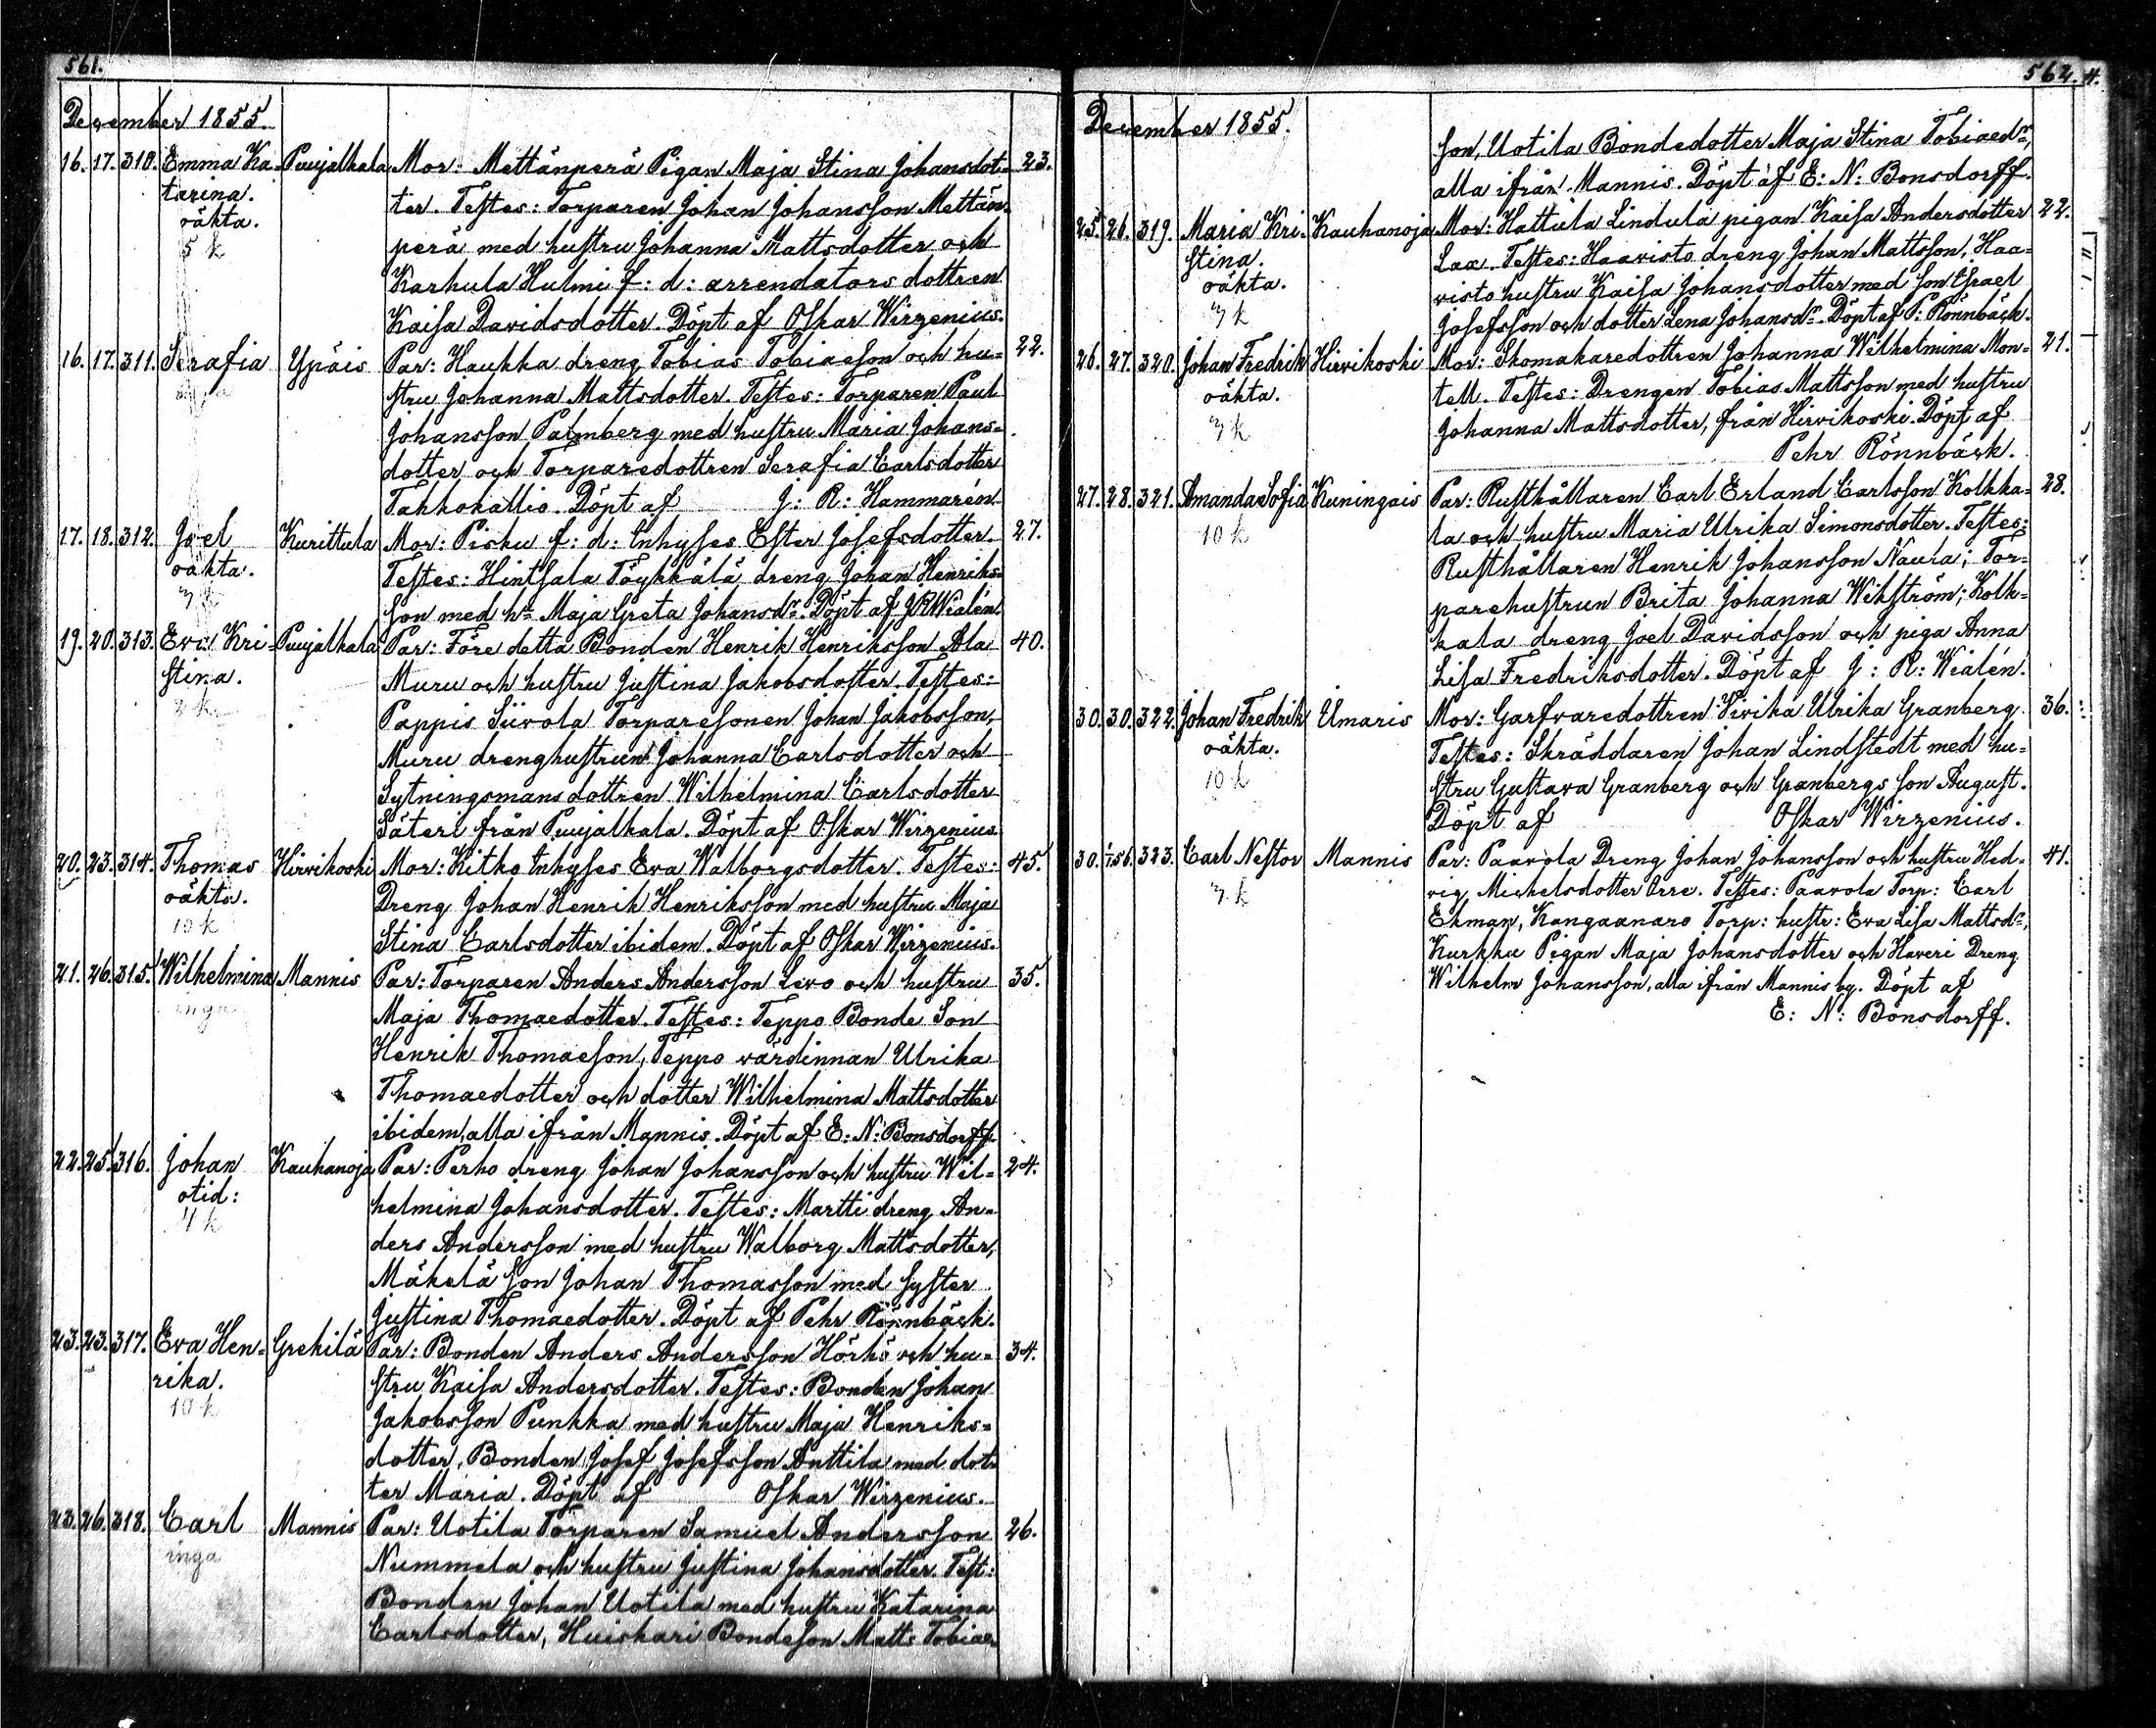 561.
December 1855.
16. 17. 310. Emma Ka- Puujalkala Mor: Mettänperä Pigan Maja Stina Johansdot- 23.
tarina. ter. Testes: Torparen Johan Johansson Mettän-
oäkta. perä med hustru Johanna Mattsdotter och
5 k Karhula Hulmi f: d: arrendators dottren
Kaisa Davidsdotter. Döpt af Oskar Wirzenius.
16. 17. 311. Serafia Ypäis Par: Haukka dreng Tobias Tobiaeson och hu- 22.
stru Johanna Mattsdotter. Testes: Torparen Paul
Johansson Palmberg med hustru Maria Johans-
dotter och Torparedottren Serafia Carlsdotter
Takkokallio. Döpt af J: R: Hammarén.
17. 18. 312. Joel Kurittula Mor: Pisku f: d: Inhyses Ester Josefsdotter. 27.
oäkta. Testes: Hintsala Töykkälä dreng Johan Henriks-
son med hu Maja Greta Johansdr. Döpt af J R Wialén.
19. 20. 313. Eva Kri- Puujalkala Par: Före detta Bonden Henrik Henriksson Ala 40.
stina. Muru och hustru Justina Jakobsdotter. Testes:
Pappis Siivola Torparesonen Johan Jakobsson,
Muru drenghustrun Johanna Carlsdotter och
Sytningsmans dottren Wilhelmina Carlsdotter
Säteri från Puujalkala. Döpt af Oskar Wirzenius.
20. 23. 314. Thomas Hirvikoski Mor: Kitko Inhyses Eva Walborgsdotter. Testes: 45.
oäkta. Dreng Johan Henrik Henriksson med hustru Maja
10 k Stina Carlsdotter ibidem. Döpt af Oskar Wirzenius.
21. 26. 315. Wilhelmina Mannis Par: Torparen Anders Andersson Levo och hustru 35.
inga Maja Thomaedotter. Testes: Teppo Bonde Son
Henrik Thomaeson, Teppo värdinnan Ulrika
Thomaedotter och dotter Wilhelmina Mattsdotter
ibidem, alla ifrån Mannis. Döpt af E: N: Bonsdorff.
22. 25. 316. Johan Kauhanoja Par: Perho dreng Johan Johansson och hustru Wil- 24.
otid: helmina Johansdotter. Testes: Martti dreng An-
4 k ders Andersson med hustru Walborg Mattsdotter,
Mäkelä Son Johan Thomasson med syster
Justina Thomaedotter. Döpt af Pehr Rönnbäck.
23. 23. 317. Eva Hen- Grekilä Par: Bonden Anders Andersson Hörkö och hu- 34.
rika. stru Kaisa Andersdotter. Testes: Bonden Johan
10 k Jakobsson Punkka med hustru Maja Henriks-
dotter, Bonden Josef Josefsson Anttila med dot-
ter Maria. Döpt af Oskar Wirzenius.
23. 26. 318. Carl Mannis Par: Uotila Torparen Samuel Andersson 26.
inga Nummela och hustru Justina Johansdotter. Test:
Bonden Johan Uotila med hustru Katarina
Carlsdotter, Huiskari Bondeson Matts Tobiae-
562.
December 1855.
son, Uotila Bondedotter Maja Stina Tobiaedr,
alla ifrån Mannis. Döpt af E: N: Bonsdorff.
25. 26. 319. Maria Kri- Kauhanoja Mor: Hattula Lindula pigan Kaisa Andersdotter 22.
stina. Lax. Testes: Haavisto dreng Johan Mattsson, Haa-
oäkta. visto hustru Kaisa Johansdotter med son Israel
3 k Josefsson och dotter Lena Johansdr. Döpt af P: Rönnbäck.
26. 27. 320. Johan Fredrik Hirvikoski Mor: Skomakaredottren Johanna Wilhelmina Mon- 21.
oäkta. tell. Testes: Drengen Tobias Mattsson med hustru
3 k Johanna Mattsdotter, från Hirvikoski. Döpt af
Pehr Rönnbäck.
27. 28. 321. Amanda Sofia Kuningais Par: Rusthållaren Carl Erland Carlsson Kolkka- 28.
10 k la och hustru Maria Ulrika Simonsdotter. Testes:
Rusthållaren Henrik Johansson Naura; Tor-
parehustrun Brita Johanna Wikström; Kolk-
kala dreng Joel Davidsson och piga Anna
Lisa Fredriksdotter. Döpt af J: R: Wialén.
30. 30. 322. Johan Fredrik Umaris Mor: Garfvaredottren Vivika Ulrika Granberg. 36.
oäkta. Testes: Skräddaren Johan Lindstedt med hu-
10 k stru Gustava Granberg och Granbergs son August.
Döpt af Oskar Wirzenius.
30. 1/1 56. 323. Carl Nestor Mannis Par: Paavola Dreng Johan Johansson och hustru Hed- 41.
3 k vig Michelsdotter Orre. Testes: Paavola Torp: Carl
Ekman, Kangaanaro Torp: hustr: Eva Lisa Mattsdr,
Kurkku Pigan Maja Johansdotter och Haveri Dreng
Wilhelm Johansson, alla ifrån Mannis by. Döpt af
E: N: Bonsdorff.